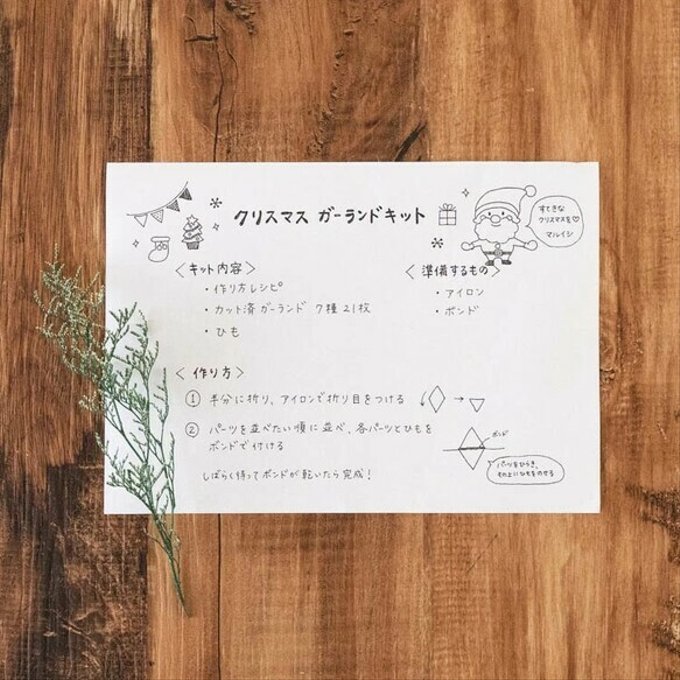 クリスマス ガーランドキット
すてきな
クリスマスを♡
マルイシ
〈キット内容〉
・作り方レシピ
・カット済ガーランド 7種21枚
・ひも
〈準備するもの〉
・アイロン
・ボンド
〈作り方〉
① 半分に折り、アイロンで折り目をつける
② パーツを並べたい順に並べ、各パーツとひもを
ボンドで付ける
ボンド
パーツをひらき、
その上にひもをのせる
しばらく待ってボンドが乾いたら完成！